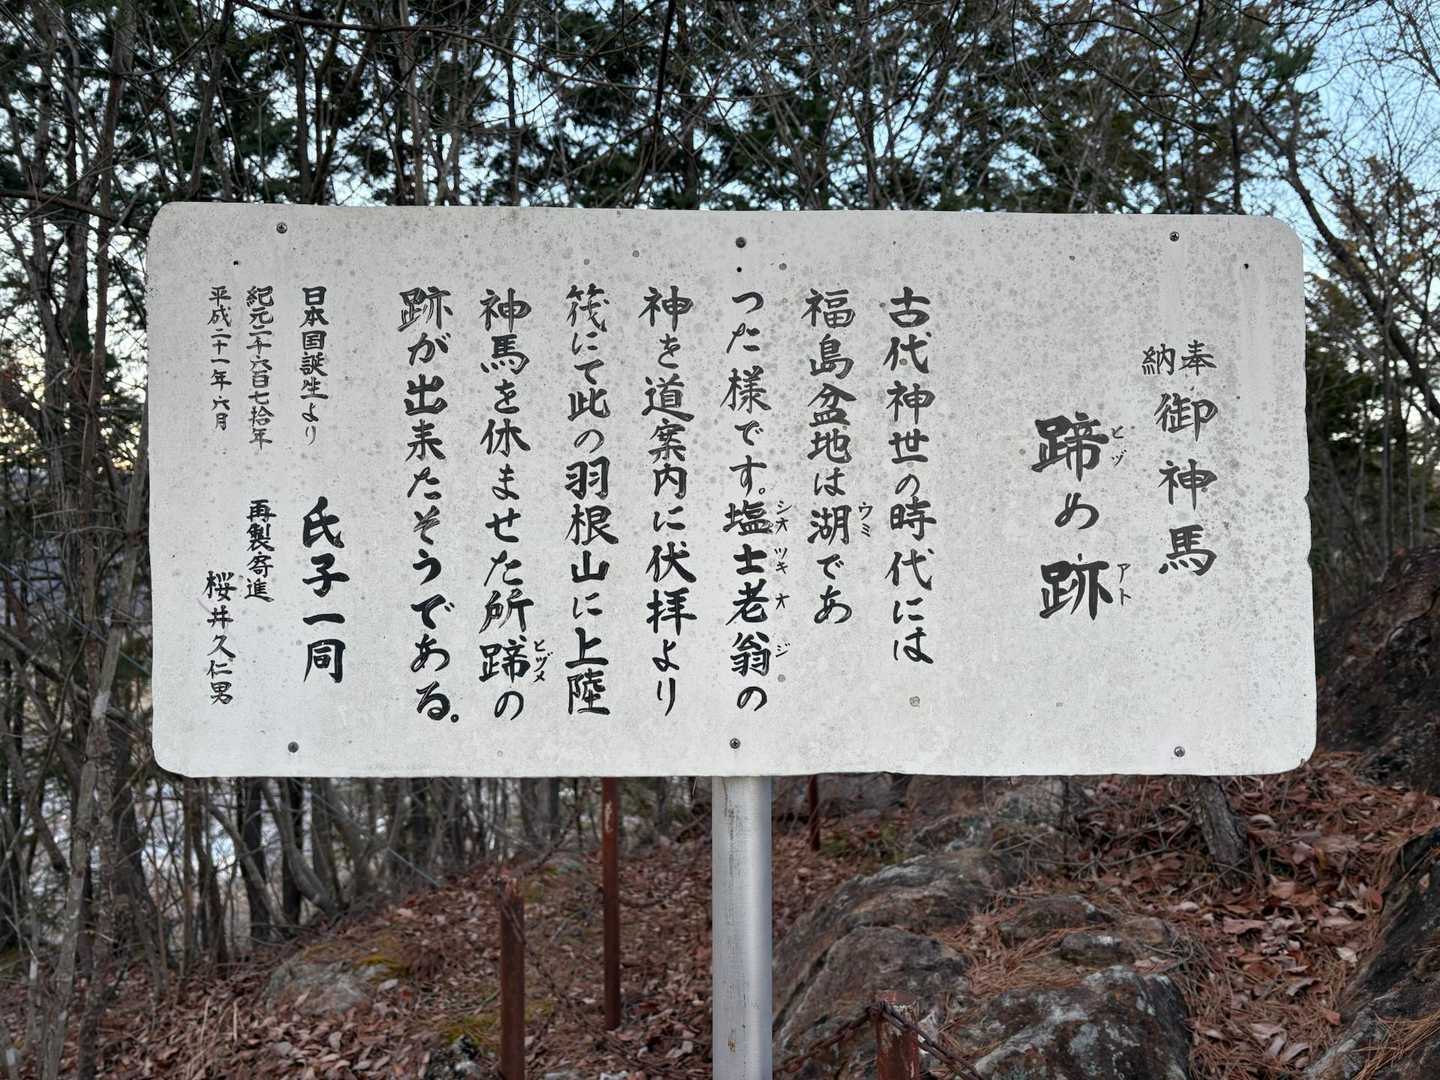 奉納 御神馬
蹄め跡
ヒヅ
アト
古代神世の時代には
福島盆地は湖であ
ウミ
った様です。塩士老翁の
シオツキオジ
神を道案内に伏拝より
筏にて此の羽根山に上陸
神馬を休ませた所蹄の
ヒヅメ
跡が出来たそうである。
日本国誕生より
紀元二千六百七拾年
平成二十一年六月
氏子一同
再製寄進
桜井久仁男